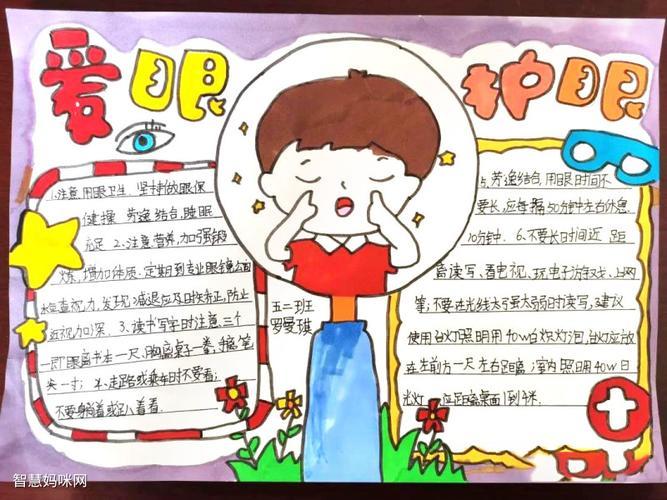 爱眼
护眼
1.注意用眼卫生、坚持做眼保
健操 劳逸结合,睡眠
充足 2、注意营养,加强锻
炼,增加体质、定期到专业眼镜公司
检查视力,发现减退应及时矫正,防止
近视加深。3、读书写字时注意三个
一即眼离书本一尺,胸离桌子一拳,手离笔
尖一寸; 4、走路或乘车时不要看;
不要躺着或趴着看.
五二班
罗曼琪
5、劳逸结合,用眼时间不
要长,应每隔50分钟左右休息
10分钟、6、不要长时间近 距
离读写、看电视、玩电子游戏、上网
等;不要在光线太强太弱时读写,建议
使用台灯照明用40w白炽灯泡,台灯应放
在左前方一尺左右距离;室内照明用40w日
光灯 应距离桌面1到
智慧妈咪网